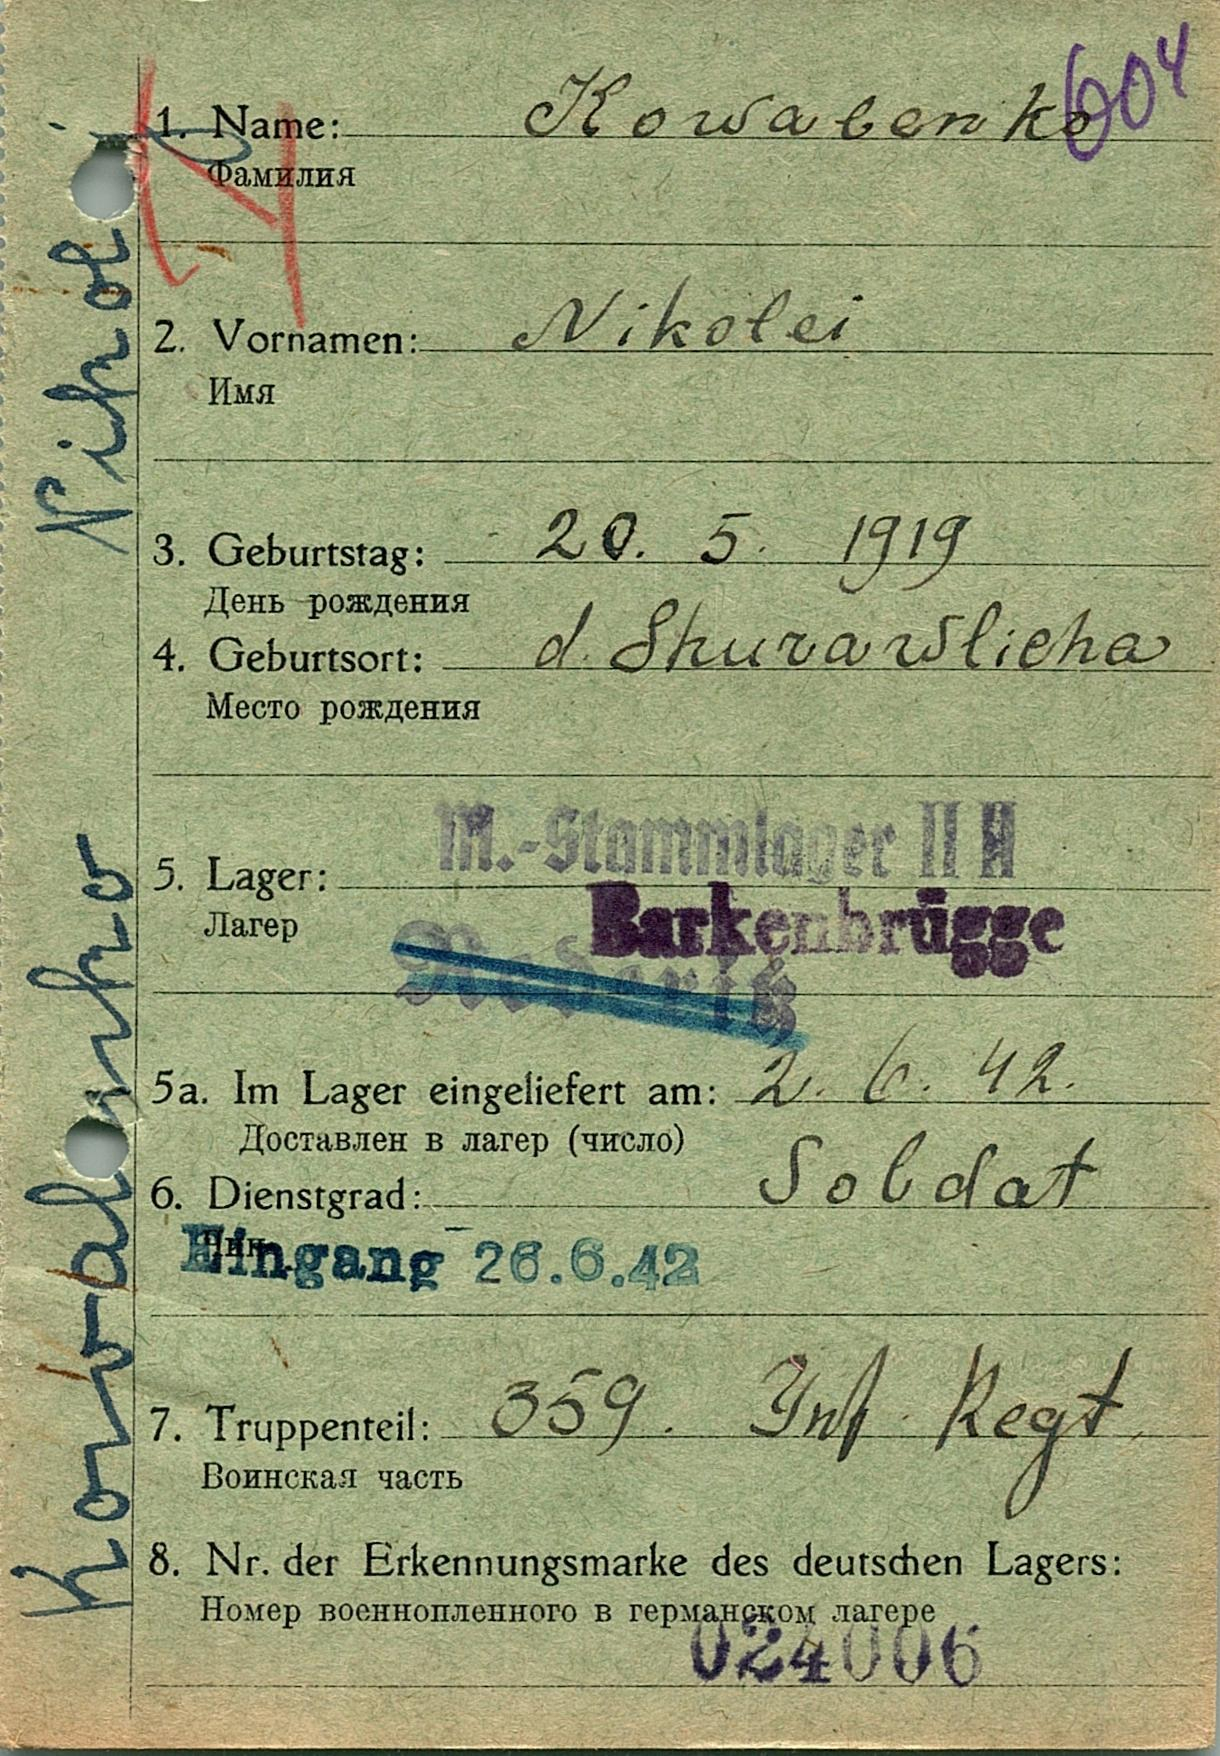 604
1. Name: Kowalenko
Фамилия
2. Vornamen: Nikolei
Имя
3. Geburtstag: 20. 5. 1919
День рождения
4. Geburtsort: d. Shurawlicha
Место рождения
M.-Stammlager II H
5. Lager:
Barkenbrügge
Лагер
Rederitz
5a. Im Lager eingeliefert am: 2. 6. 42.
Доставлен в лагер (число)
6. Dienstgrad: Soldat
Чин
Eingang 26.6.42
7. Truppenteil: 359. Inf. Regt.
Воинская часть
8. Nr. der Erkennungsmarke des deutschen Lagers:
Номер военнопленного в германском лагере
024006
Kowalenko Nikol